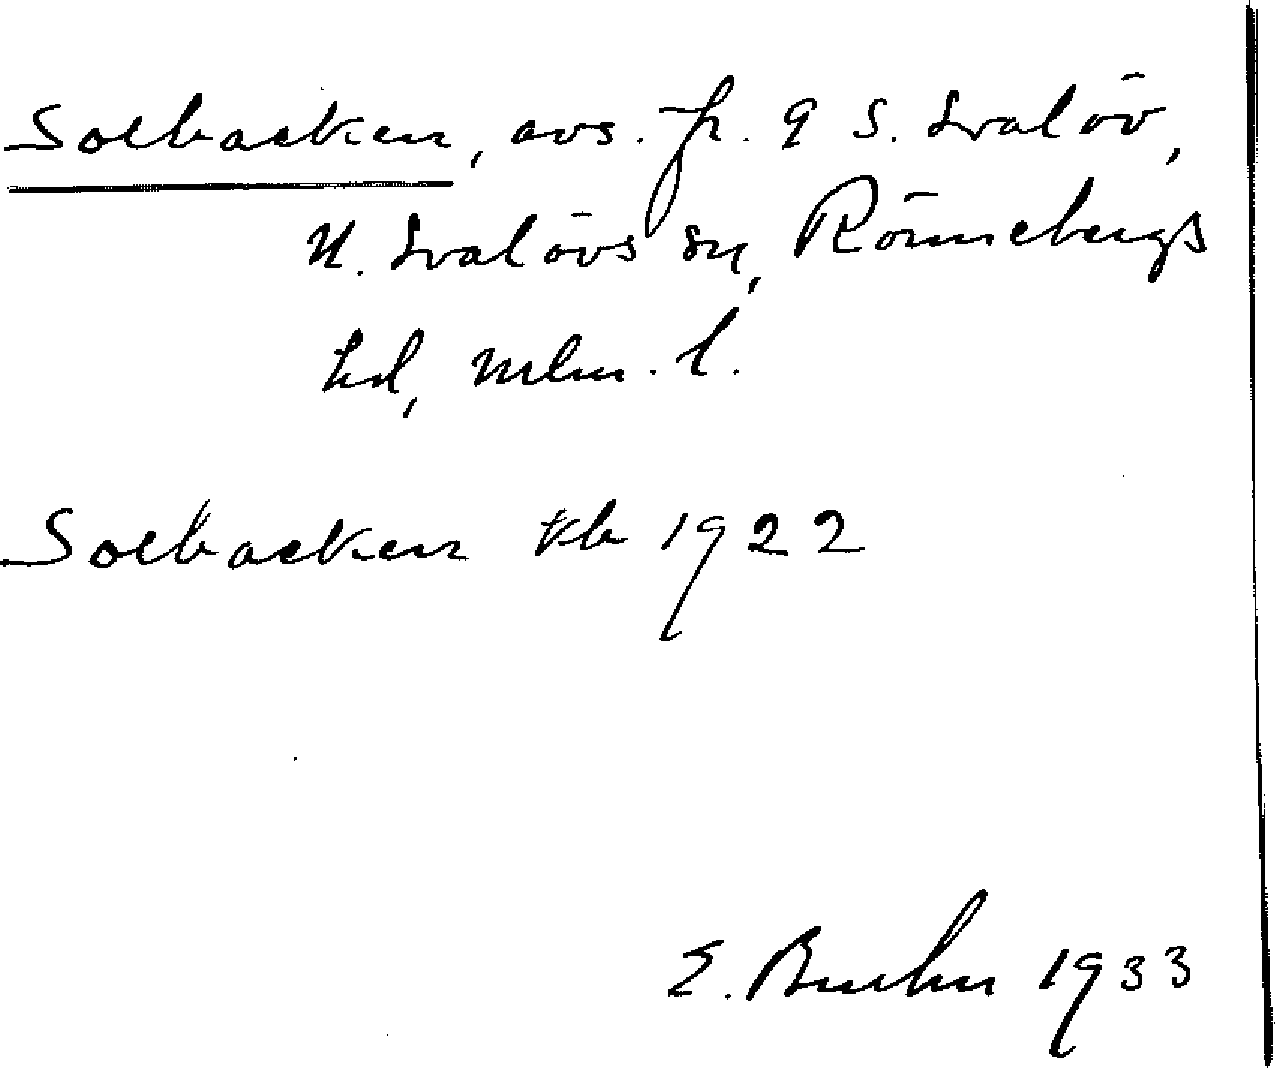 Solbacken, avs. fr. 9 S. Svalöv,
N. Svalövs sn, Rönnebergs
hd, Mlm. l.
Solbacken kb 1922
E. Bruhn 1933